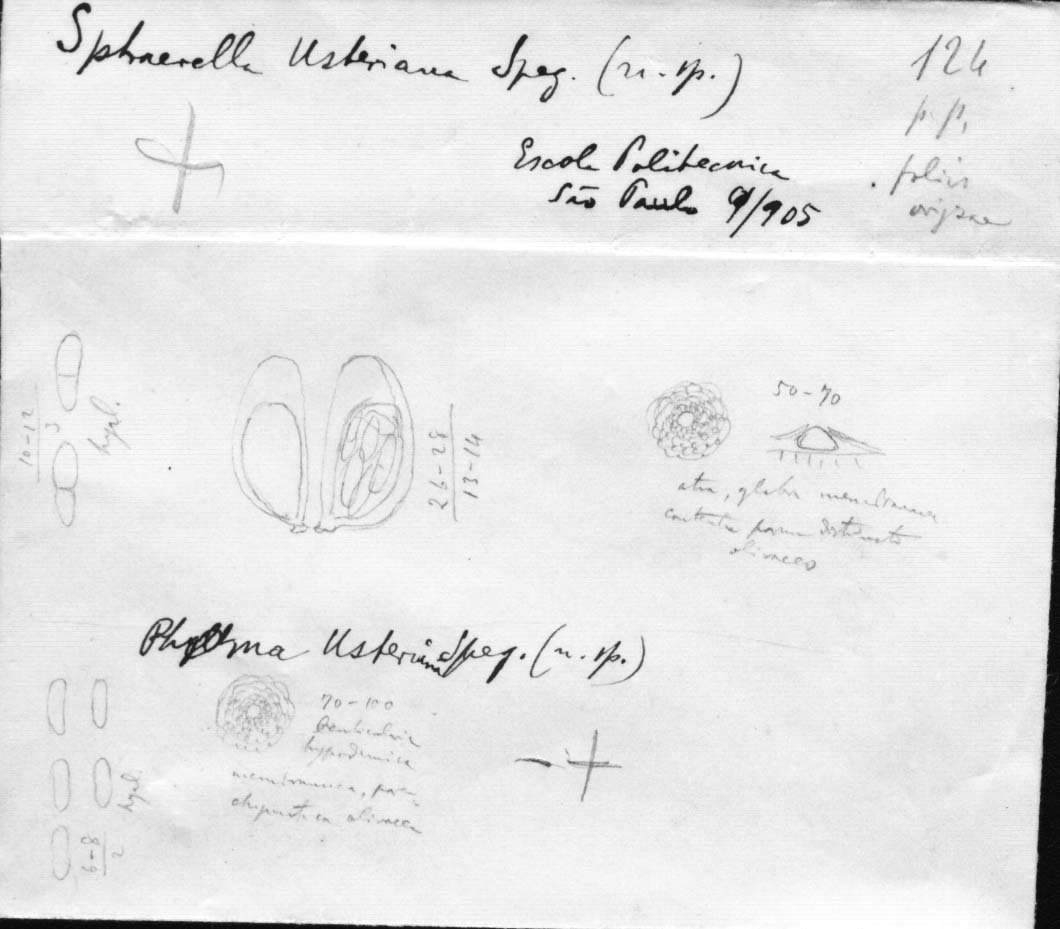 Sphaerella Usteriana Speg. (n. sp.)
124
p. p.
Escola Politecnica
São Paulo 9/905
. foliis
10-12
3
hyal.
26-28
13-14
50-70
atra, glabra membranacea
contextu parum distincto
olivaceo
Usteriana Speg. (n. sp.)
70-100
lenticularia
hypodermica
membranacea, paren-
chymatica olivacea
hyal
6-8
2